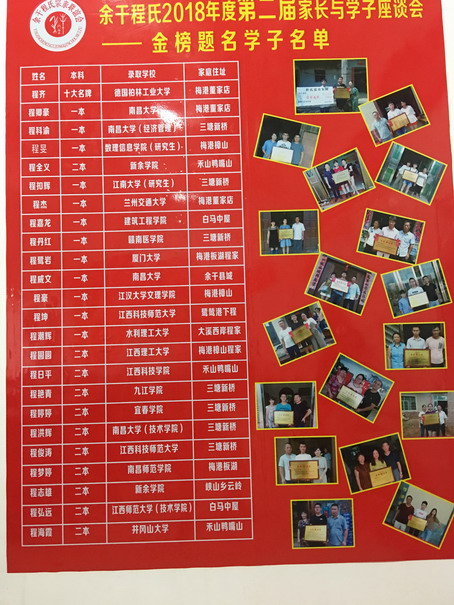 余干程氏宗亲联谊会
余干程氏2018年度第二届家长与学子座谈会
—— 金榜题名学子名单
姓名 本科 录取学校 家庭住址
程齐 十大名牌 德国柏林工业大学 梅港董家店
程卿豪 一本 南昌大学 梅港董家店
程科渝 一本 南昌大学（经济管理） 三塘新桥
程旻 一本 数理信息学院（研究生） 梅港樟山
程全义 二本 新余学院 禾山鸭嘴山
程扣辉 一本 江南大学（研究生） 三塘新桥
程杰 一本 兰州交通大学 梅港董家店
程嘉龙 一本 建筑工程学院 白马中屋
程丹红 一本 赣南医学院 三塘新桥
程鹭岩 一本 厦门大学 梅港板湖程家
程威文 一本 南昌大学 余干县城
程豪 一本 江汉大学文理学院 梅港樟山
程坤 一本 江西科技师范大学 鹭鸶港下程
程潮辉 一本 水利理工大学 大溪西岸程家
程圆圆 二本 江西理工大学 梅港樟山程家
程日平 二本 江西科技学院 禾山鸭嘴山
程艳青 二本 九江学院 三塘新桥
程婷婷 二本 宜春学院 三塘新桥
程洪辉 二本 南昌大学（技术学院） 三塘新桥
程俊涛 二本 江西科技师范大学 三塘新桥
程梦婷 二本 南昌师范学院 梅港板湖
程志雄 二本 新余学院 峡山乡云岭
程弘远 二本 江西师范大学（技术学院） 白马中屋
程海霞 二本 井冈山大学 禾山鸭嘴山